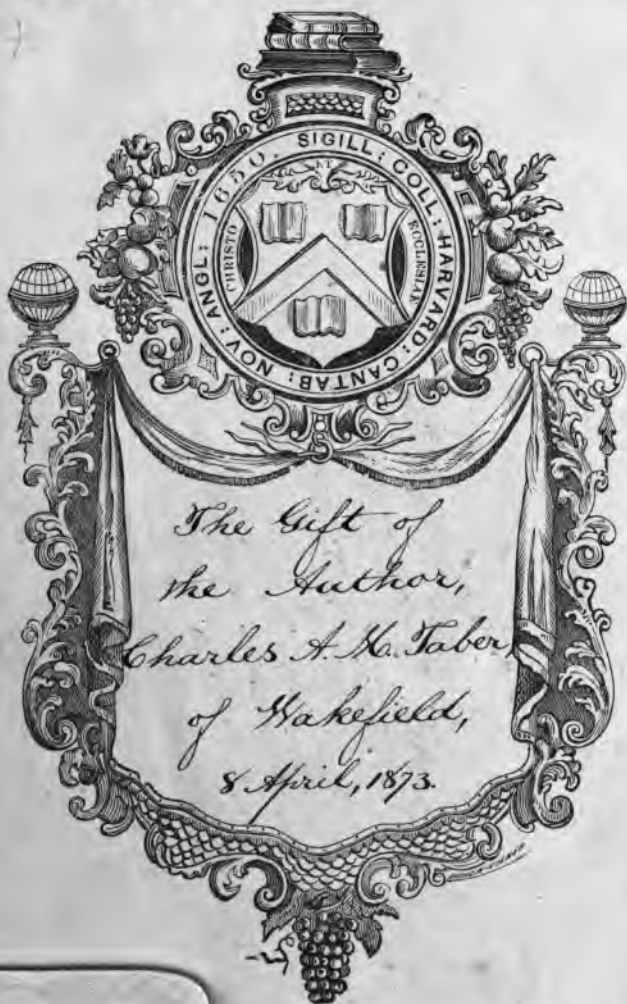 SIGILL: COLL: HARVARD: CANTAB: NOV: ANGL: 1650.
ET
CHRISTO
ECCLESIAE
The Gift of
the Author,
Charles A. M. Taber,
of Wakefield,
8 April, 1873.